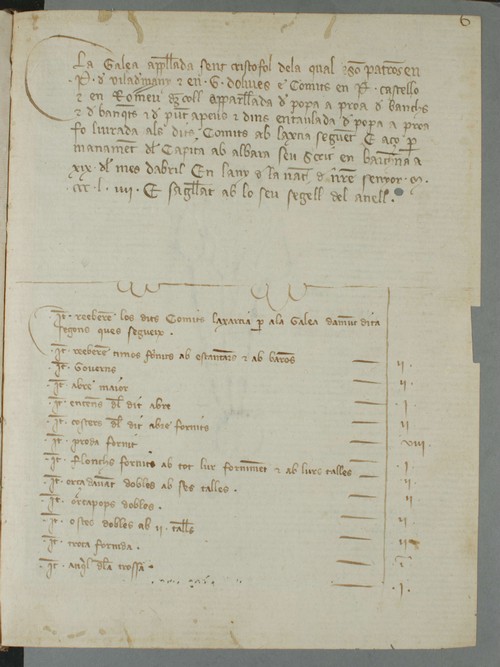 6
La Galea appellada sent cristofol dela qual son patrons en
P. de viladmany e en G. e Comits en P. castello
e en Romeu appellada de popa a proa de banchs
e de banquets e de e dins entaulada de popa a proa
fo liurada als dits Comits ab la xarcia seguent E aço per
manament del Capita ab albara seu Scrit en barchna a
xix. dl mes dabril En lany de la nat de nre senyor .m.
ccc .l. iiii. E sagellat ab lo seu segell del anell.
It. reeberen los dits Comits la xarcia per a la Galea damunt dita
segons ques segueix.
.It. reeberen timos fornits ab e ab barons — ij.
.It. Governs — ij.
.It. abre maior — .j.
.It. entenes dl dit abre — ij
.It. costers dl dit abre fornits — viij.
.It. proda fornit — .j.
.It. fornits ab tot lur forniment e ab lurs talles — ij.
.It. dobles ab ses talles. — ij
.It. orçapops dobles. — ij
.It. ostes dobles ab ij. talles — ij
.It. troça fornida. — j
.It. dla trossa. — .j.